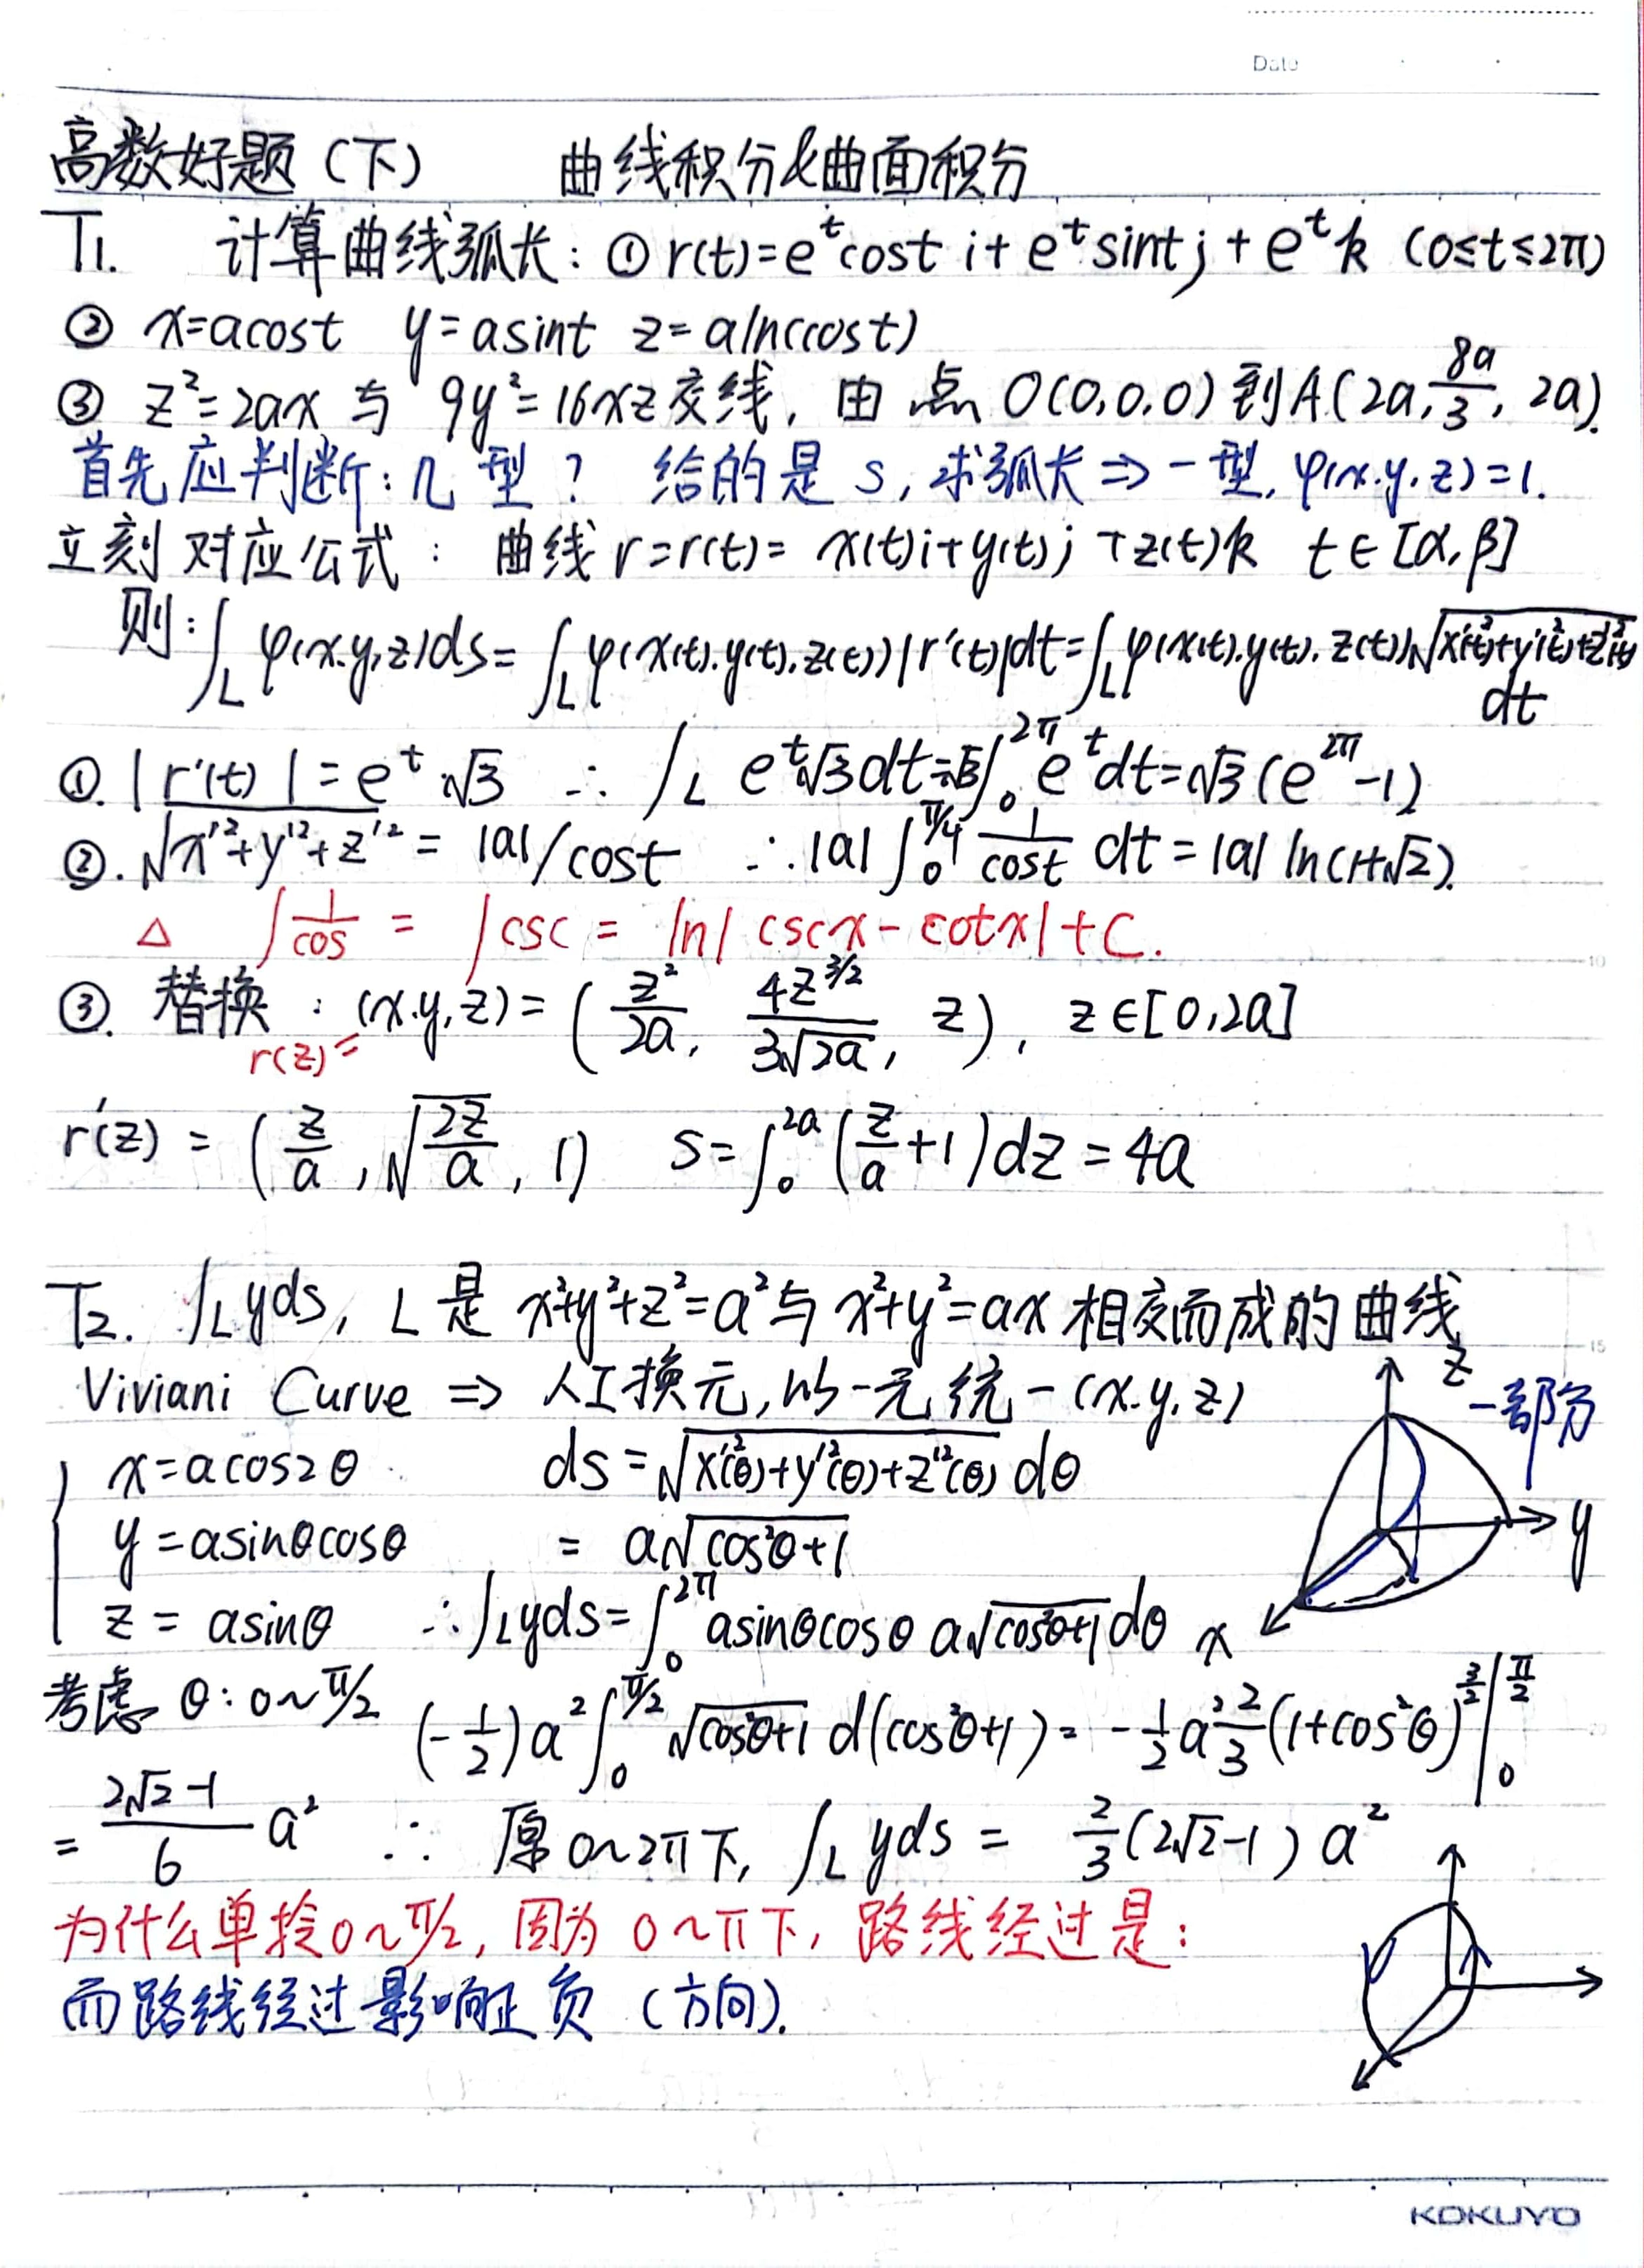 Date
高数好题(下) 曲线积分&曲面积分
T1. 计算曲线弧长: ① r(t)=e^t cost i + e^t sint j + e^t k (0≤t≤2π)
② x=acost y=asint z=aln(cost)
③ z²=2ax 与 9y²=16xz交线, 由 点 O(0,0,0) 到A(2a, 8a/3, 2a).
首先应判断: 几 型? 给的是 s, 求弧长 ⇒ 一型, φ(x.y.z)=1.
立刻 对应公式: 曲线 r=r(t)= x(t)i+y(t)j+z(t)k t∈[α,β]
则: ∫_L φ(x.y,z)ds = ∫_L φ(x(t).y(t).z(t))|r'(t)|dt = ∫_L φ(x(t).y(t).z(t))√(x'²(t)+y'²(t)+z'²(t)) dt
①. |r'(t)| = e^t √3 ∴ ∫_L e^t √3 dt = √3 ∫_0^{2π} e^t dt = √3 (e^{2π}-1)
②. √(x'²+y'²+z'²) = |a|/cost ∴ |a| ∫_0^{π/4} 1/cost dt = |a| ln(1+√2).
△ ∫ 1/cos = ∫csc = ln|cscx-cotx|+C.
③. 替换: (x.y,z) = (z²/2a, 4z^{3/2}/3√2a, z), z∈[0,2a]
r(z)=
r'(z) = (z/a, √(2z/a), 1) s=∫_0^{2a} (z/a+1)dz = 4a
T2. ∫_L yds, L 是 x²+y²+z²=a² 与 x²+y²=ax 相交而成的曲线
Viviani Curve ⇒ 人工换元, 以一元统一(x.y.z)
z
一部分
x=acos2θ ds=√(x'²(θ)+y'²(θ)+z'²(θ)) dθ
y=asinθcosθ = a√(cos²θ+1)
y
z=asinθ ∴ ∫_L yds = ∫_0^{2π} asinθcosθ a√(cos²θ+1) dθ
x
考虑 θ: 0~π/2 (-1/2)a² ∫_0^{π/2} √(cos²θ+1) d(cos²θ+1) = -1/2 a² 2/3 (1+cos²θ)^{3/2} |_0^{π/2}
= (2√2-1)/6 a² ∴ 原0~2π下, ∫_L yds = 2/3(2√2-1) a²
为什么单拎0~π/2, 因为 0~π下, 路线经过是:
而路线经过影响正负 (方向).
KOKUYO